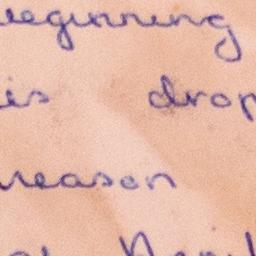 beginning
is drop
reason